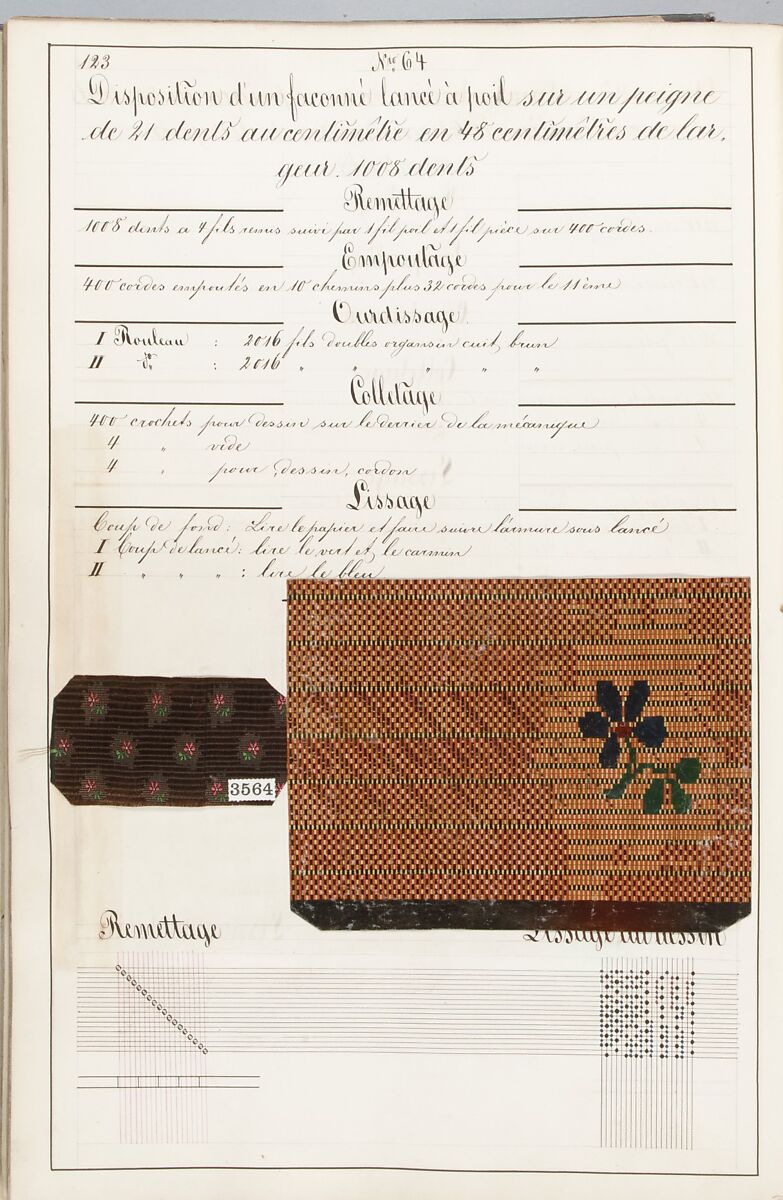 123
Nro 64
Disposition d'un façonné lancé à poil sur un peigne
de 21 dents au centimètre en 48 centimètres de lar.
geur. 1008 dents
Remettage
1008 dents a 4 fils remis suivi par 1 fil poil et 1 fil pièce sur 400 cordes.
Empoutage
400 cordes empoutés en 10 chemins plus 32 cordes pour le 11ème
Ourdissage.
I Rouleau : 2016 fils doubles organsin cuit, brun
II do : 2016 " " " " "
Colletage
400 crochets pour dessin sur le derrier de la mécanique
4 " vide
4 " pour dessin, cordon
Lissage
Coup de fond : Lire le papier et faire suivre l'armure sous lancé
I Coup de lancé : lire le vert et, le carmin
II " " " : lire le bleu
3564
Remettage
Lissage du dessin